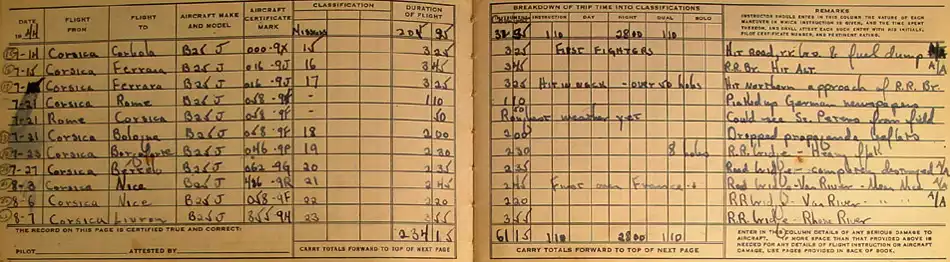 DATE FLIGHT FLIGHT AIRCRAFT MAKE AIRCRAFT CLASSIFICATION DURATION
IN 44 FROM TO AND MODEL CERTIFICATE MARK Missions OF FLIGHT
7-14 Corsica B25J 000-9X 15 3 25
7-15 Corsica Ferrara B25J 016-9J 16 3 45
7- Corsica Ferrara B25J 016-9J 17 3 25
7-21 Corsica Rome B25J 058-9F - 1 10
7-21 Rome Corsica B25J 058-9F - 50
7-21 Corsica Bologna B25J 058-9F 18 2 00
7-23 Corsica B25J 046-9P 19 2 30
7-27 Corsica B25J 062-9G 20 2 35
8-3 Corsica Nice B25J 436-9R 21 2 45
8-6 Corsica Nice B25J 058-9F 22 2 20
8-7 Corsica Livron B25J 355-9H 23 3 55
THE RECORD ON THIS PAGE IS CERTIFIED TRUE AND CORRECT: 234 15
PILOT ATTESTED BY CARRY TOTALS FORWARD TO TOP OF NEXT PAGE
BREAKDOWN OF TRIP TIME INTO CLASSIFICATIONS REMARKS
INSTRUCTION DAY NIGHT DUAL SOLO
INSTRUCTOR SHOULD ENTER IN THIS COLUMN THE NATURE OF EACH
MANEUVER IN WHICH INSTRUCTION IS GIVEN, AND THE TIME SPENT
THEREON, AND SHALL ATTEST EACH SUCH ENTRY WITH HIS INITIALS,
PILOT CERTIFICATE NUMBER, AND PERTINENT RATING.
1 10 28 00 1 10
3 25 FIRST FIGHTERS Hit Road & fuel dump
3 45 R.R. Br. Hit Alt. A/A
3 25 HIT IN NACK - OVER 50 holes Hit Northern approach of R.R. Br.
1 10 Picked up German newspapers
50 Roughest weather yet Could see St. Peters from field
2 00 Dropped propaganda
2 30 8 holes R.R. bridge - Heavy flak
2 35 Road bridge - completely destroyed
2 45 First over France Road bridge - Var River - Near Nice A/A
2 20 R.R. bridge - Var River - " " A/A
3 55 R.R. bridge - Rhone River
61 15 1 10 28 00 1 10
CARRY TOTALS FORWARD TO TOP OF NEXT PAGE
ENTER IN THIS COLUMN DETAILS OF ANY SERIOUS DAMAGE TO
AIRCRAFT. IF MORE SPACE THAN THAT PROVIDED ABOVE IS
NEEDED FOR ANY DETAILS OF FLIGHT INSTRUCTION OR AIRCRAFT
DAMAGE, USE PAGES PROVIDED IN BACK OF BOOK.